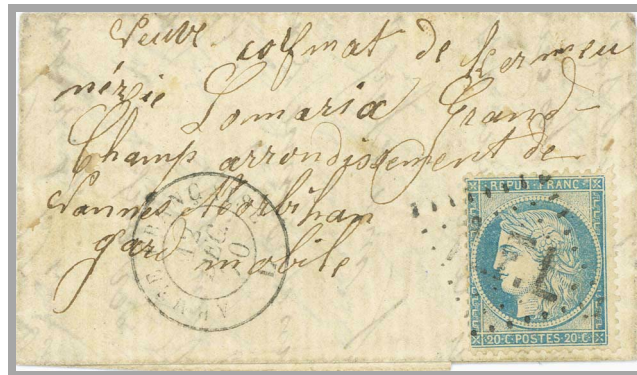 Veuve colmat de kermeu
nézie Lomaria Grand-
Champ arrondissement de
Vannes Morbihan
gard mobile
REPUB·FRANC·
20·C·POSTES·20·C·